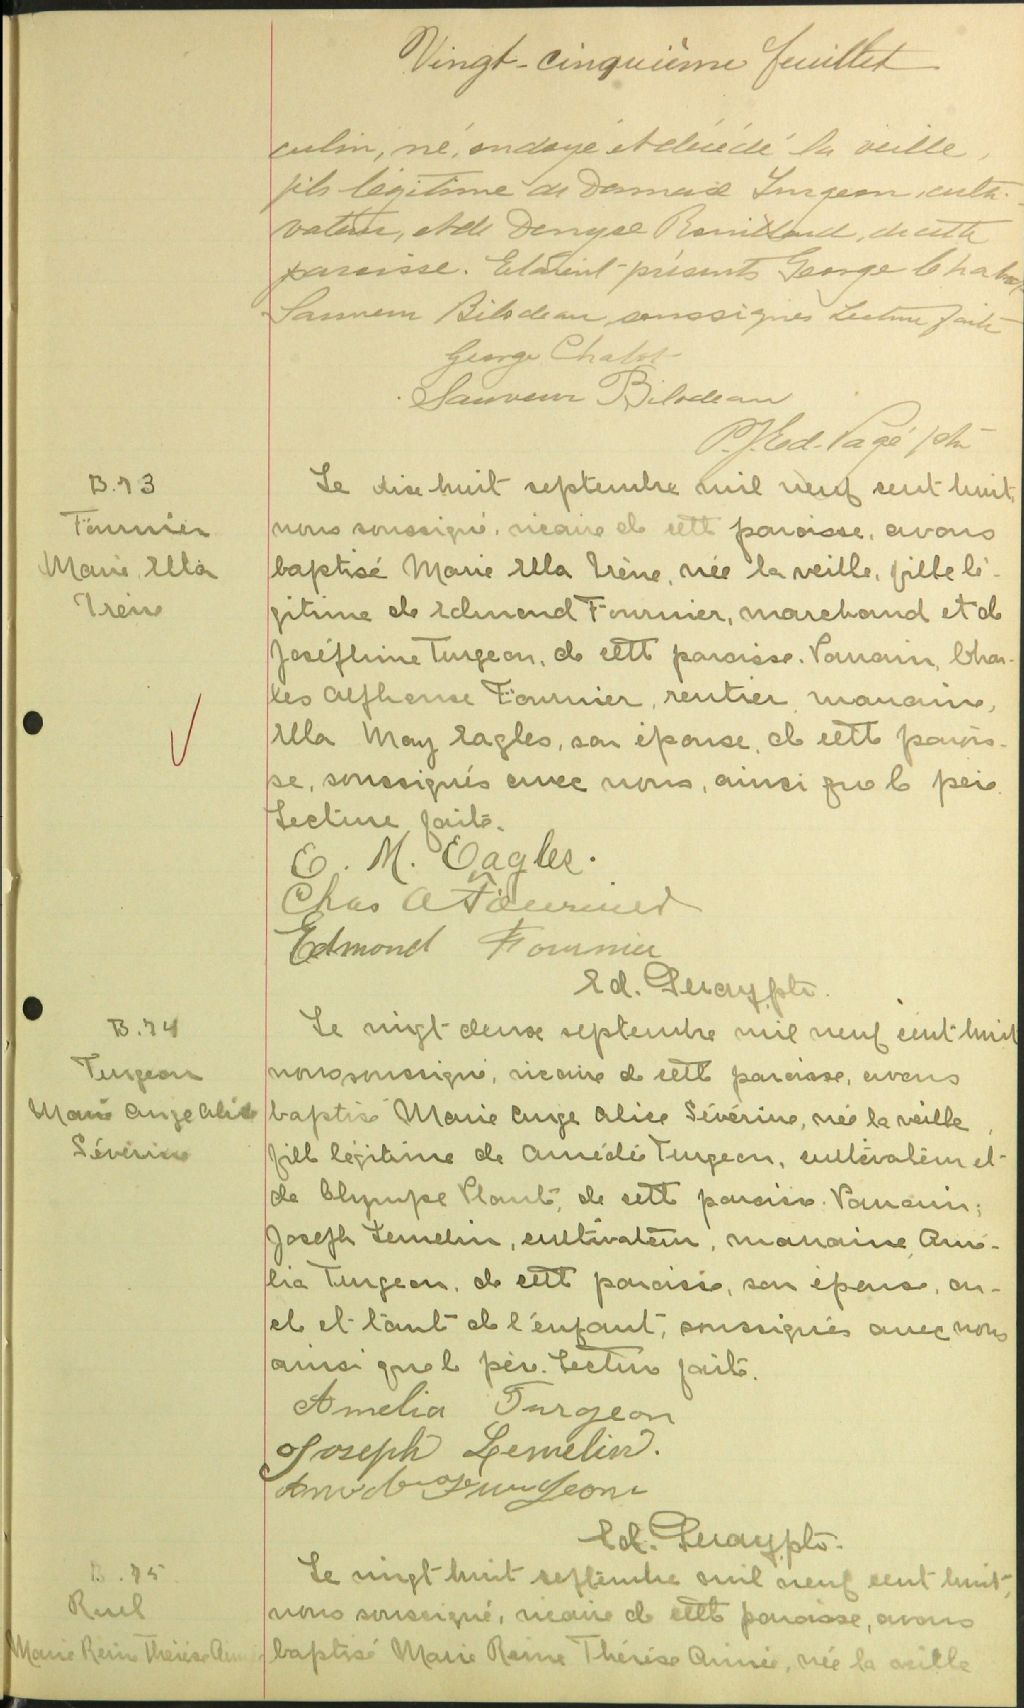 Vingt-cinquième feuillet
culin, né, ondoyé et décédé la veille,
fils légitime de Damase Turgeon, culti-
vateur, et de Denyse Rouillard, de cette
paroisse. Etaient présents George Chabot
Sauveur Bilodeau, soussignés Lecture faite
George Chabot
Sauveur Bilodeau
P.J.Ed. Pagé ptr
B.73
Fournier
Marie Ella
Irène
Le dix huit septembre mil neuf cent huit,
nous soussigné, vicaire de cette paroisse, avons
baptisé Marie Ella Irène, née la veille, fille lé-
gitime de Edmond Fournier, marchand et de
Joséphine Turgeon, de cette paroisse. Parrain, Char-
les Alphonse Fournier, rentier, marraine,
Ella May Eagles, son épouse, de cette parois-
se, soussignés avec nous, ainsi que le père.
Lecture faite.
E. M. Eagles.
Chas A Fournier
Edmond Fournier
Ed. ptr.
B.74
Turgeon
Marie Ange Alice
Séverine
Le vingt deux septembre mil neuf cent huit
nous soussigné, vicaire de cette paroisse, avons
baptisé Marie Ange Alice Sévérine, née la veille,
fille légitime de Amédée Turgeon, cultivateur et
de Olympe Plante, de cette paroisse. Parrain;
Joseph Lemelin, cultivateur, marraine, Amé-
lia Turgeon, de cette paroisse, son épouse, on-
cle et tante de l'enfant, soussignés avec nous
ainsi que le père. Lecture faite.
Amelia Turgeon
Joseph Lemelin.
Amédé Turgeon
Ed. ptr.
B.75
Ruel
Marie Reine Thérèse Aimée
Le vingt huit septembre mil neuf cent huit,
nous soussigné, vicaire de cette paroisse, avons
baptisé Marie Reine Thérèse Aimée, née la veille